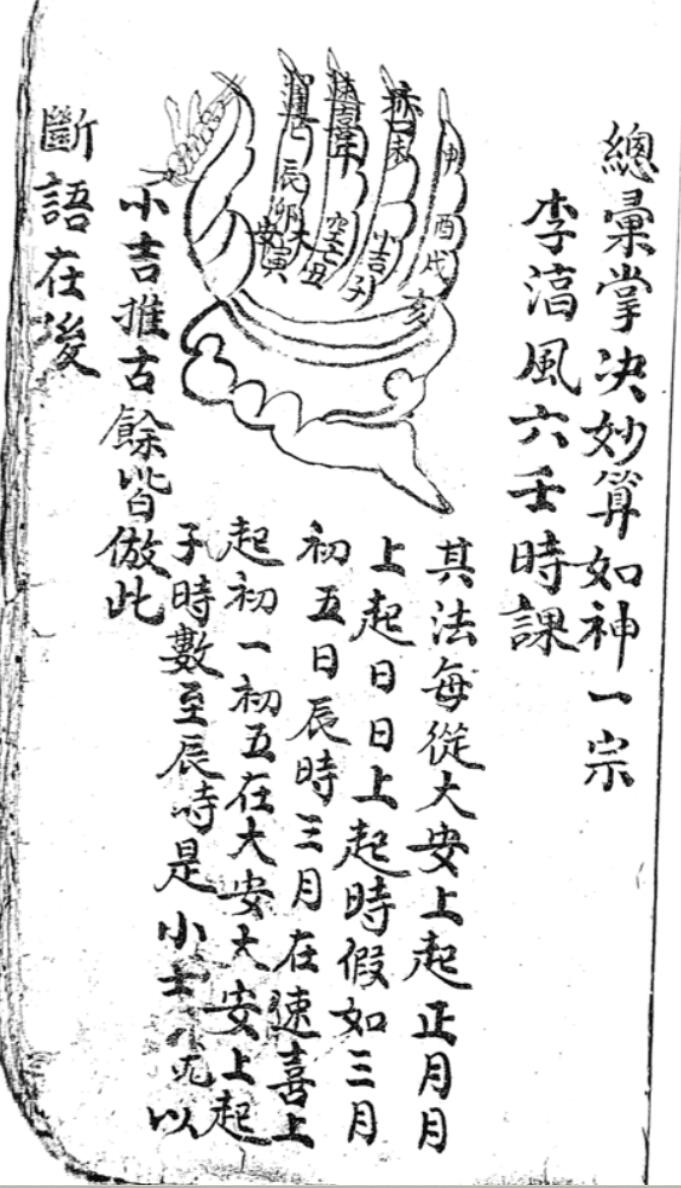 總彙掌决妙算如神一宗
李湻風六壬時課
申
酉
戌
亥
赤口未
小吉
子
速喜午
空亡
丑
留連巳
辰
卯
大安
寅
其法每從大安上起正月月
上起日日上起時假如三月
初五日辰時三月在速喜上
起初一初五在大安大安上起
子時數至辰時是小吉以
小吉推古餘皆倣此
斷語在後